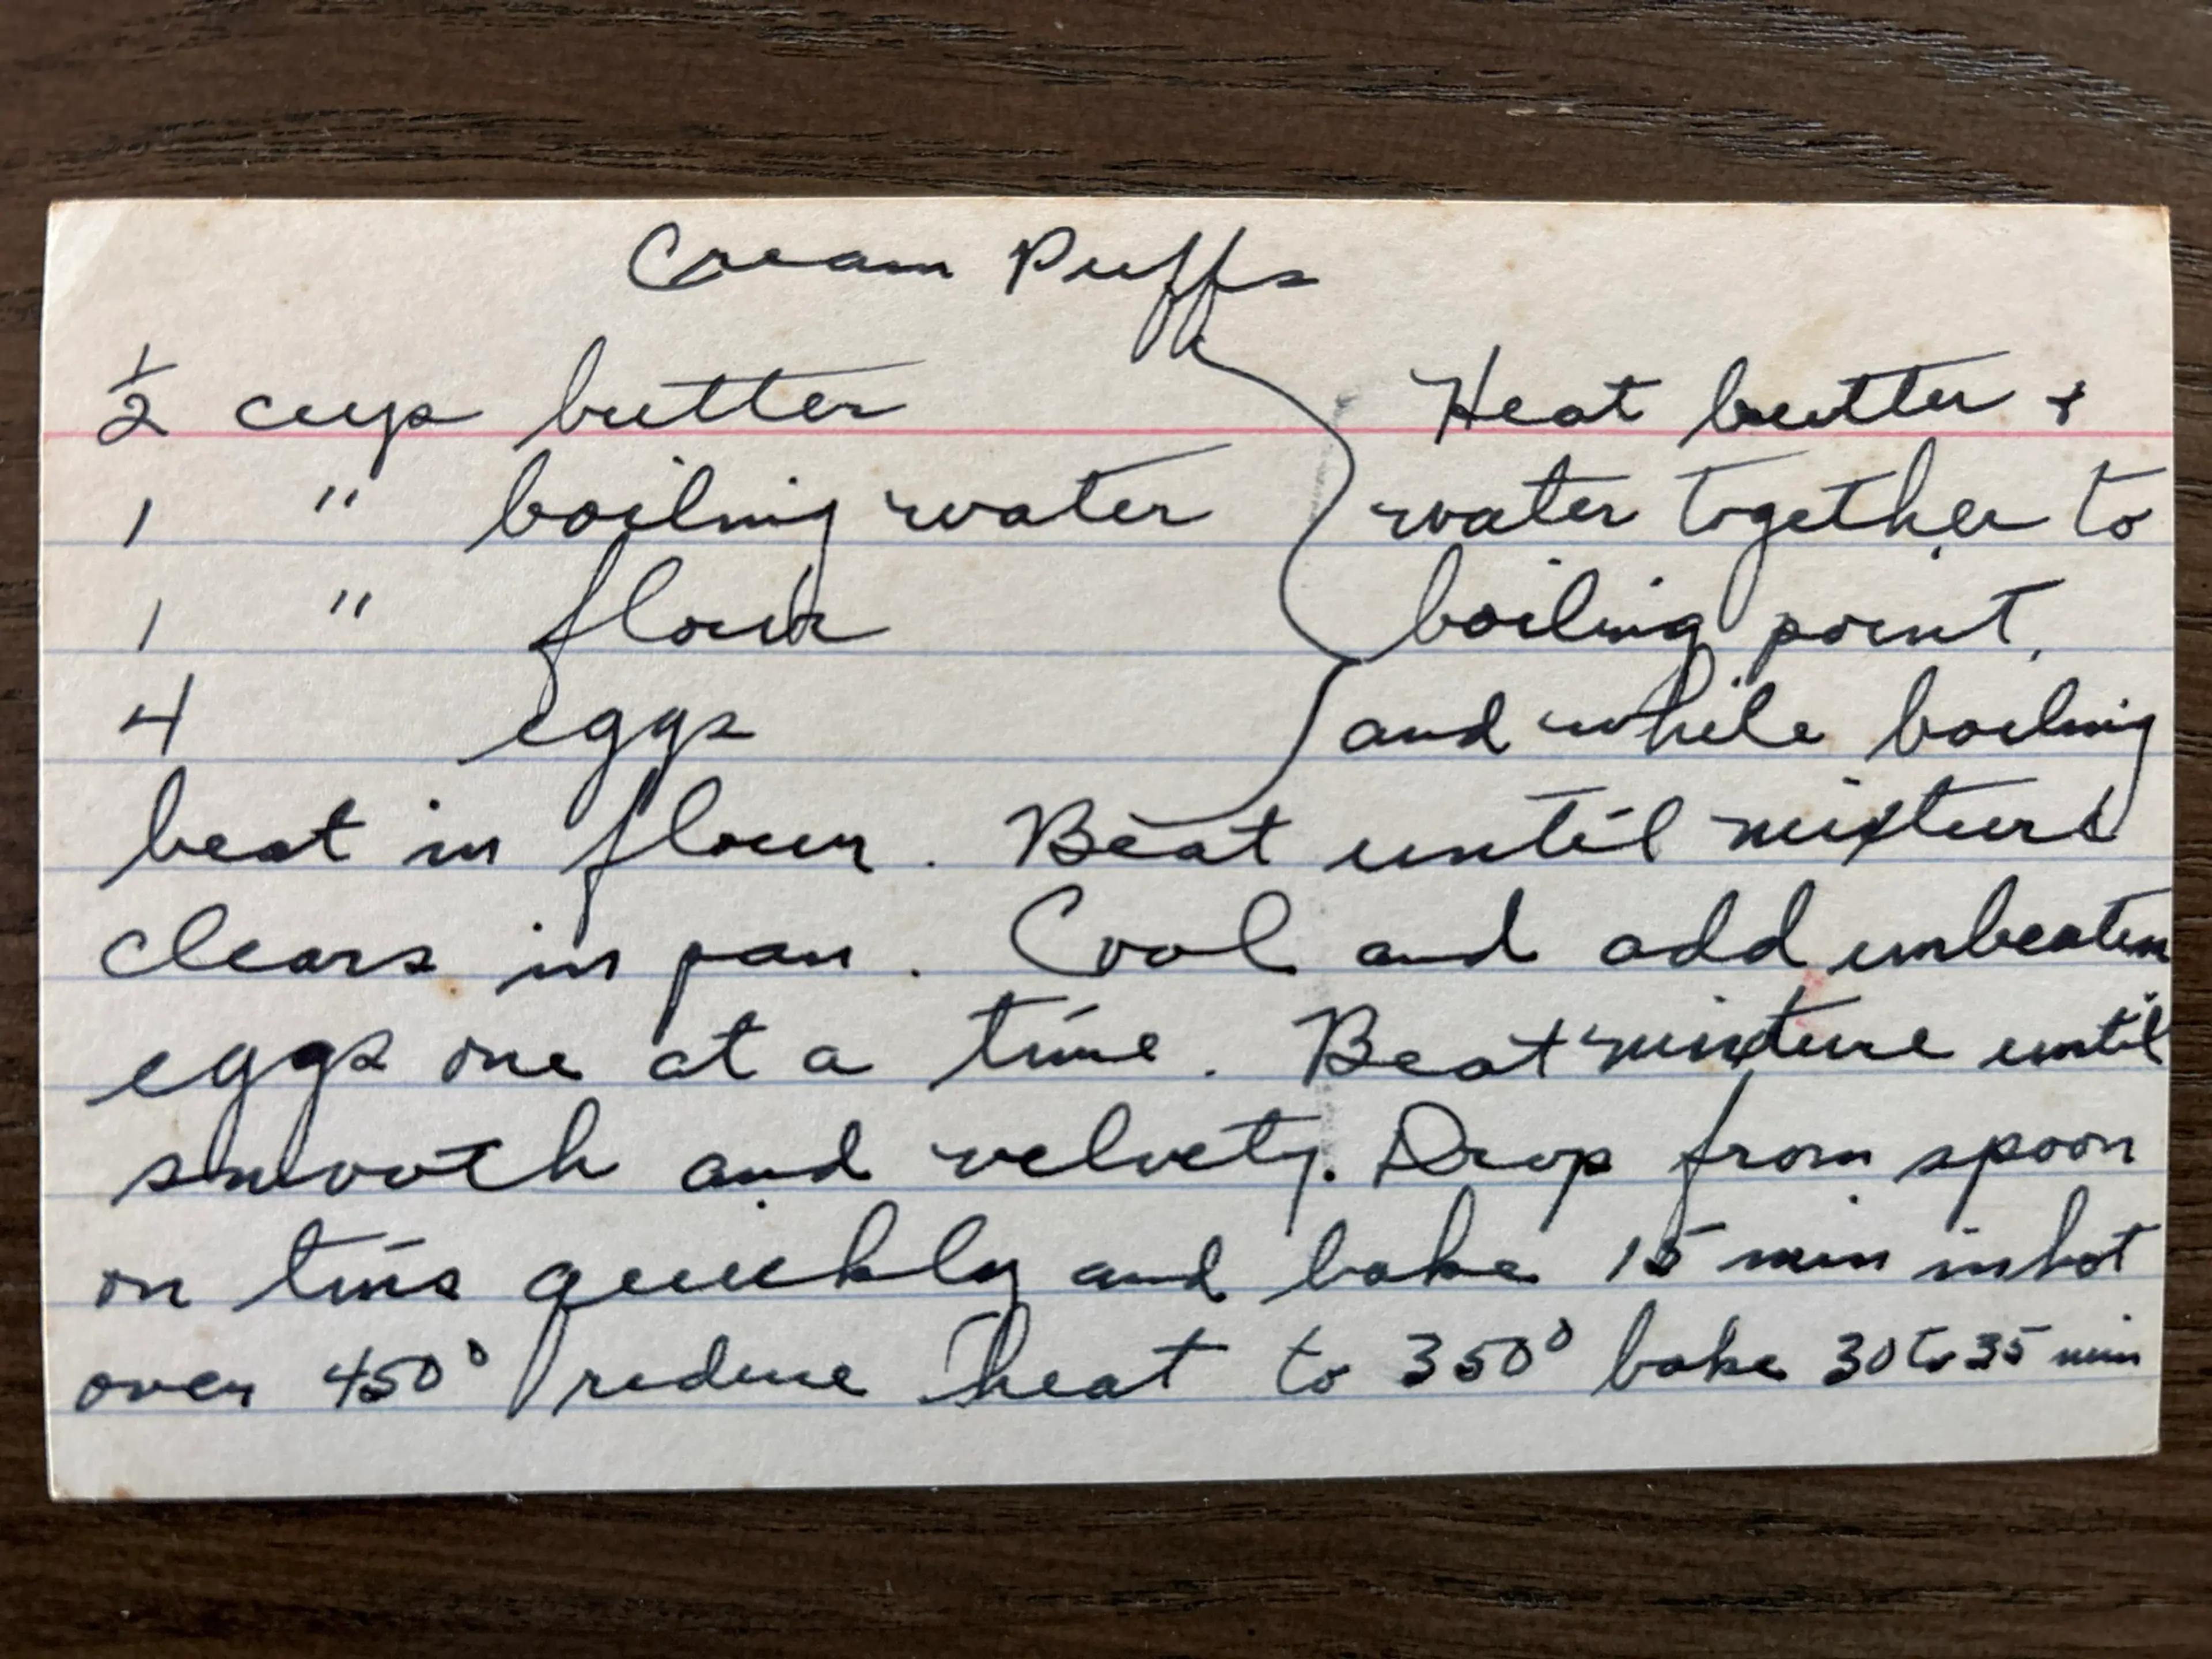 Cream Puffs
1/2 cup butter
1 " boiling water
1 " flour
4 eggs
Heat butter +
water together to
boiling point,
and while boiling
beat in flour. Beat until mixture
clears in pan. Cool and add unbeaten
eggs one at a time. Beat mixture until
smooth and velvety. Drop from spoon
on tins quickly and bake 15 min in hot
oven 450° reduce heat to 350° bake 30 to 35 min